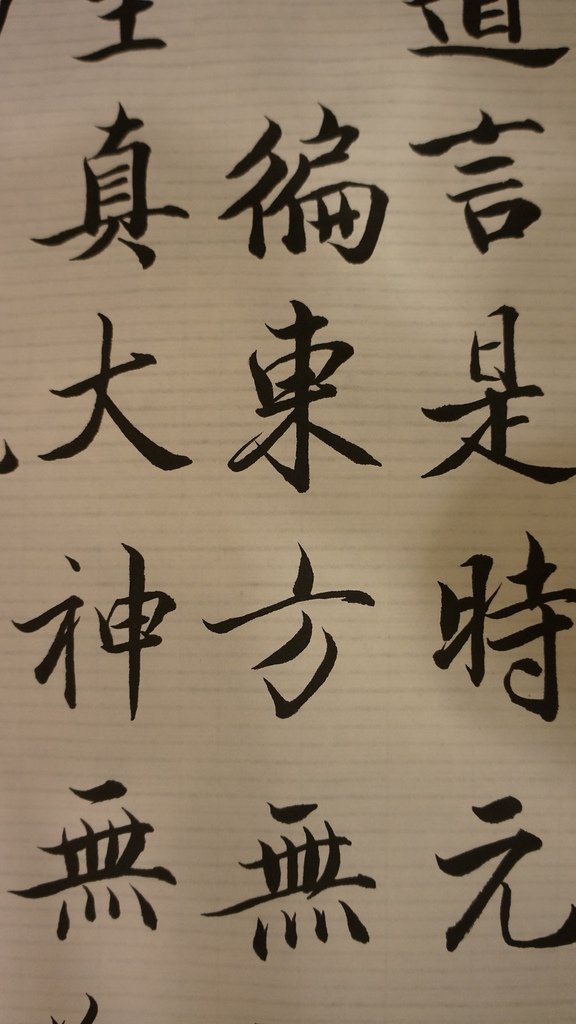 道言是時元
徧東方無
至真大神無